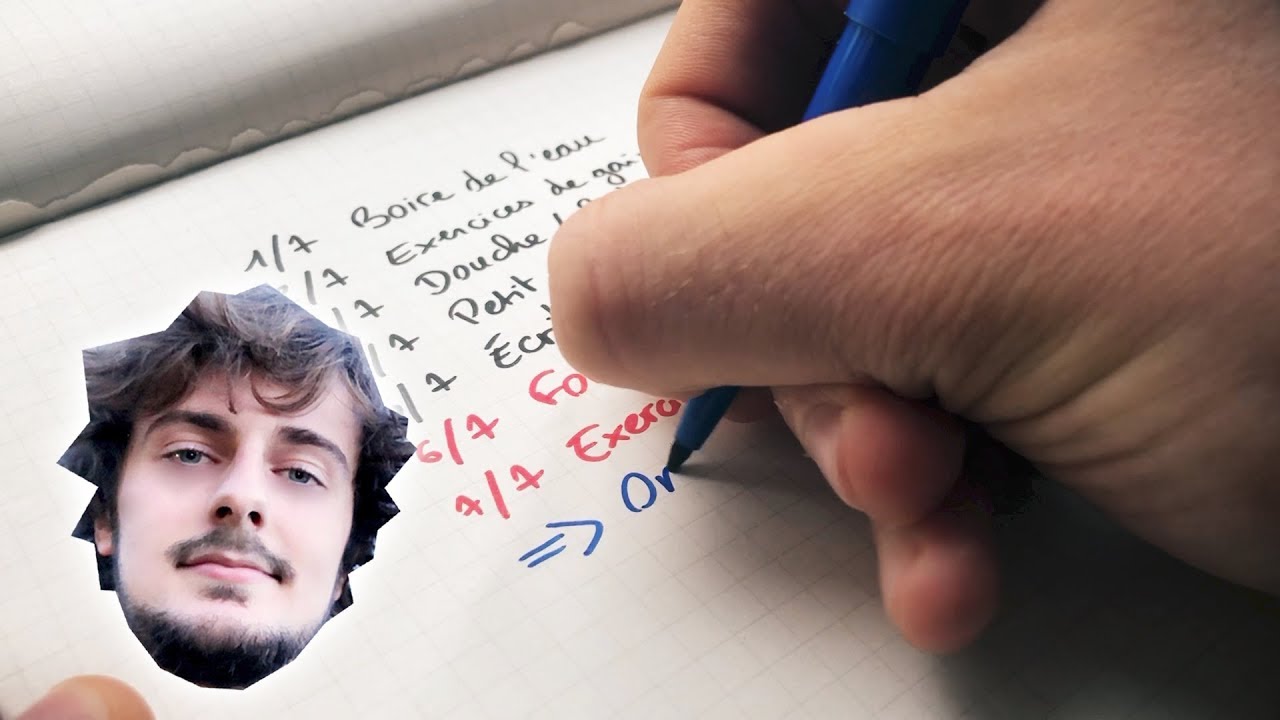 1/7 Boire de l'eau
/7 Exercices de gai
/7 Douche
/7 Petit
/7 Écri
6/7 Fo
7/7 Exerci
=> Or